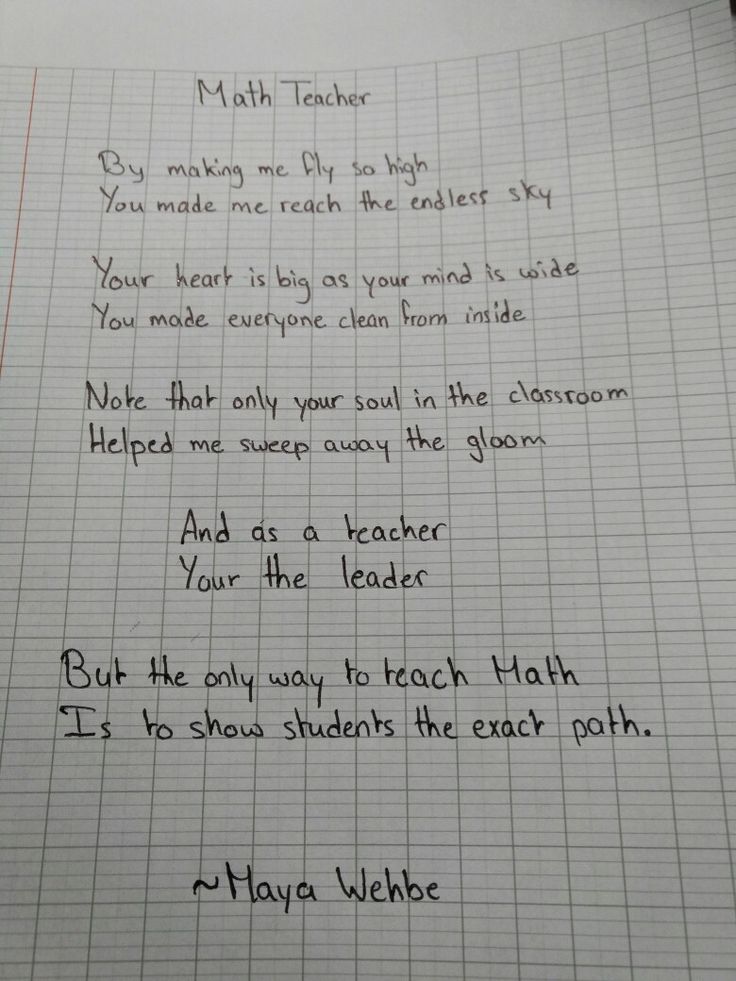 Math Teacher
By making me fly so high
You made me reach the endless sky
Your heart is big as your mind is wide
You made everyone clean from inside
Note that only your soul in the classroom
Helped me sweep away the gloom
And as a teacher
Your the leader
But the only way to teach Math
Is to show students the exact path.
~Maya Wehbe